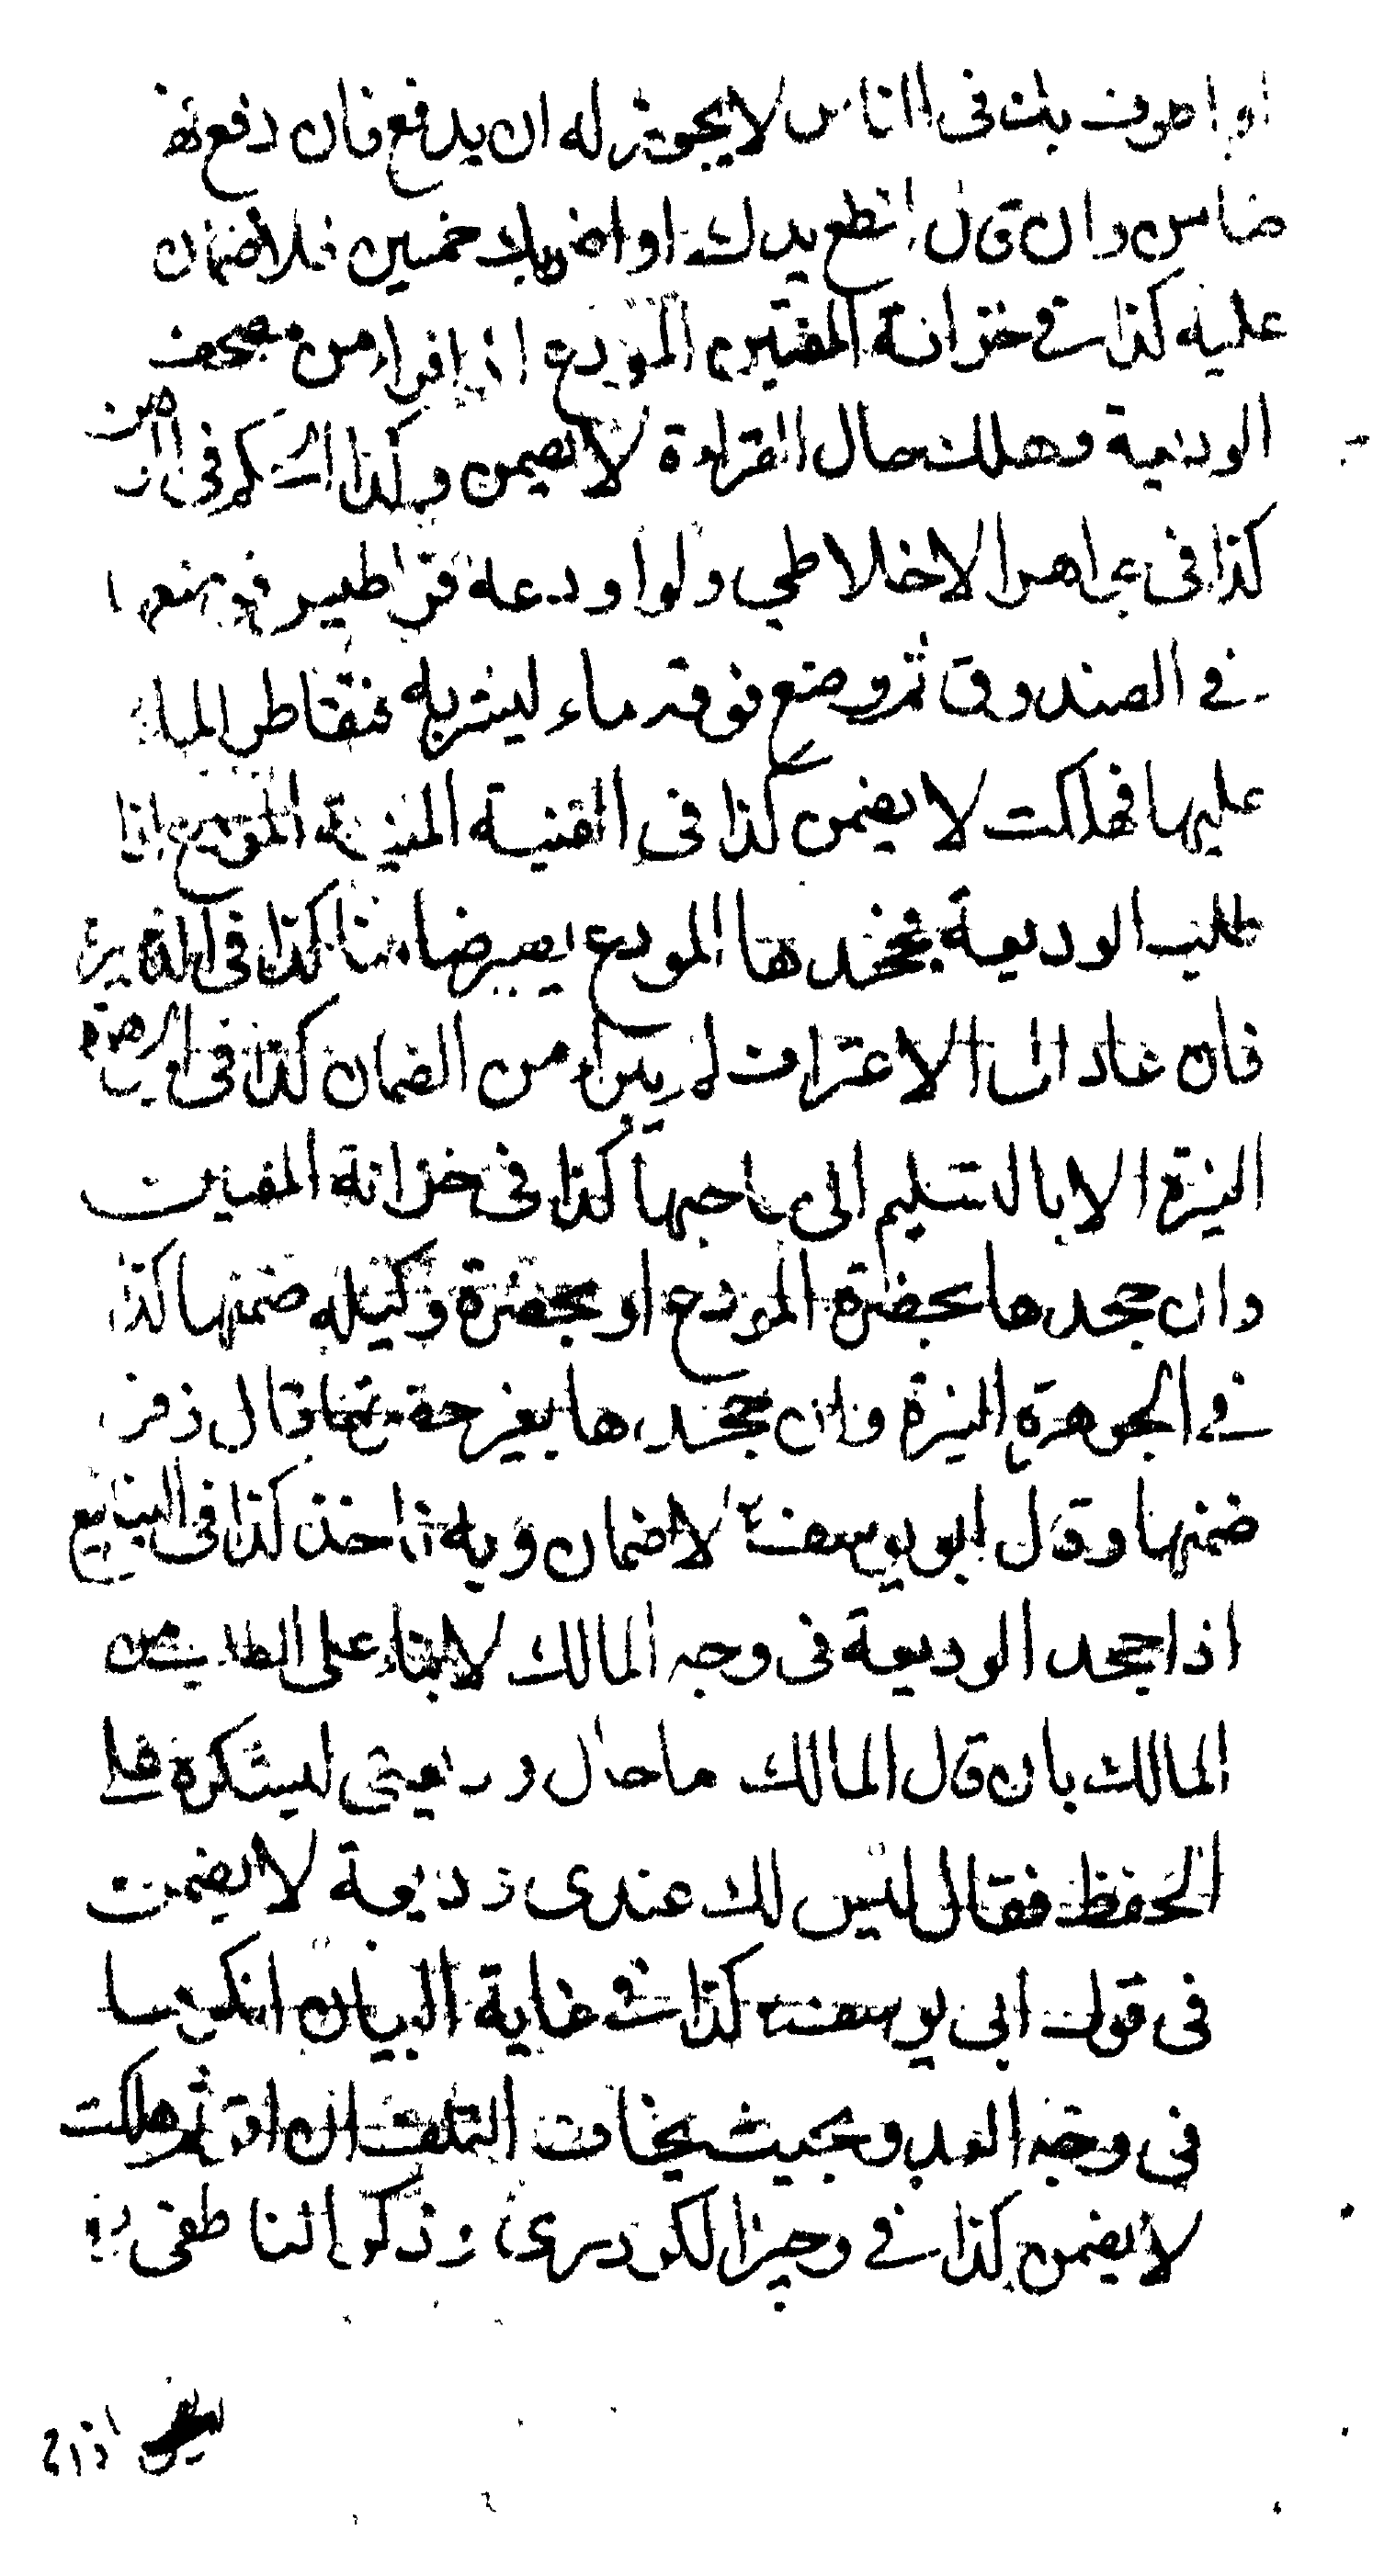 او اطوف بك فى الناس لا يجوز له ان يدفع فان دفع فهو
ضامن وان قال اقطع يدك او اضربك خمسين فلا ضمان
عليه كذا فى خزانة المفتين المودع اذا قراء من مصحف
الوديعة وهلك حال القراءة لا يضمن وكذا الحكم فى الرهن
كذا فى جواهر الاخلاطي ولو اودعه قراطيس فوضعها
فى الصندوق ثم وضع فوقه ماء ليشربه فتقاطر الماء
عليها فهلكت لا يضمن كذا فى القنية المنية المودع اذا
طلب الوديعة فجحدها المودع يصير ضامنا كذا فى
فان عاد الى الاعتراف لم يبراء من الضمان كذا فى الجوهرة
النيرة الا بالتسليم الى صاحبها كذا فى خزانة المفتين
وان جحدها بحضرة المودع او بحضرة وكيله ضمنها كذا
فى الجوهرة النيرة وان جحدها بغير حقهما قال زفر
ضمنها وقال ابو يوسف لا ضمان وبه ناخذ كذا فى الينابيع
اذا جحد الوديعة فى وجه المالك لا بناء على الطلب من
المالك بان قال المالك ما حال وديعتى ليشكره على
الحفظ فقال ليس لك عندى وديعة لا يضمن
فى قول ابى يوسف كذا فى غاية البيان انكرها
فى وجه العدو بحيث يخاف التلف ان اقر ثم هلكت
لا يضمن كذا فى وجيز الكردرى وذكر الناطفى
اذا